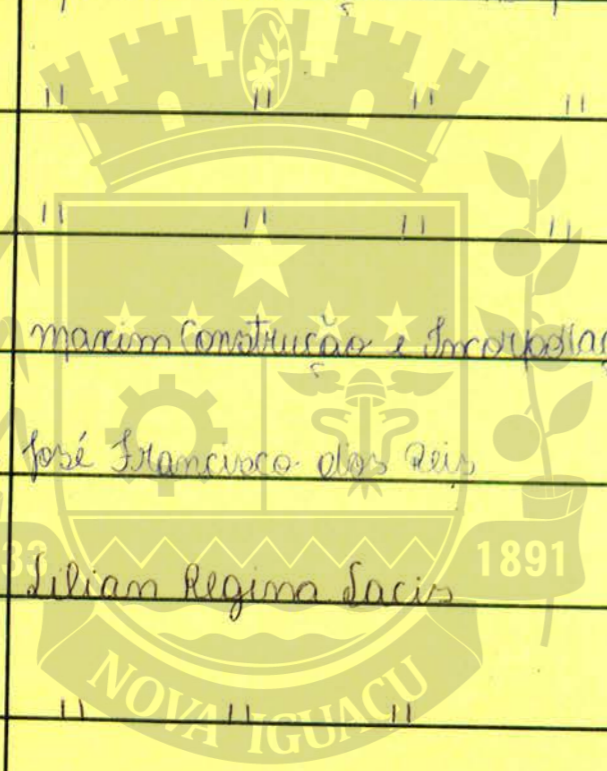 " " " "
" " " "
Maxim Construção e Incorporaç
José Francisco dos Reis
33 1891
Lilian Regina Lacis
" " "
NOVA IGUAÇU